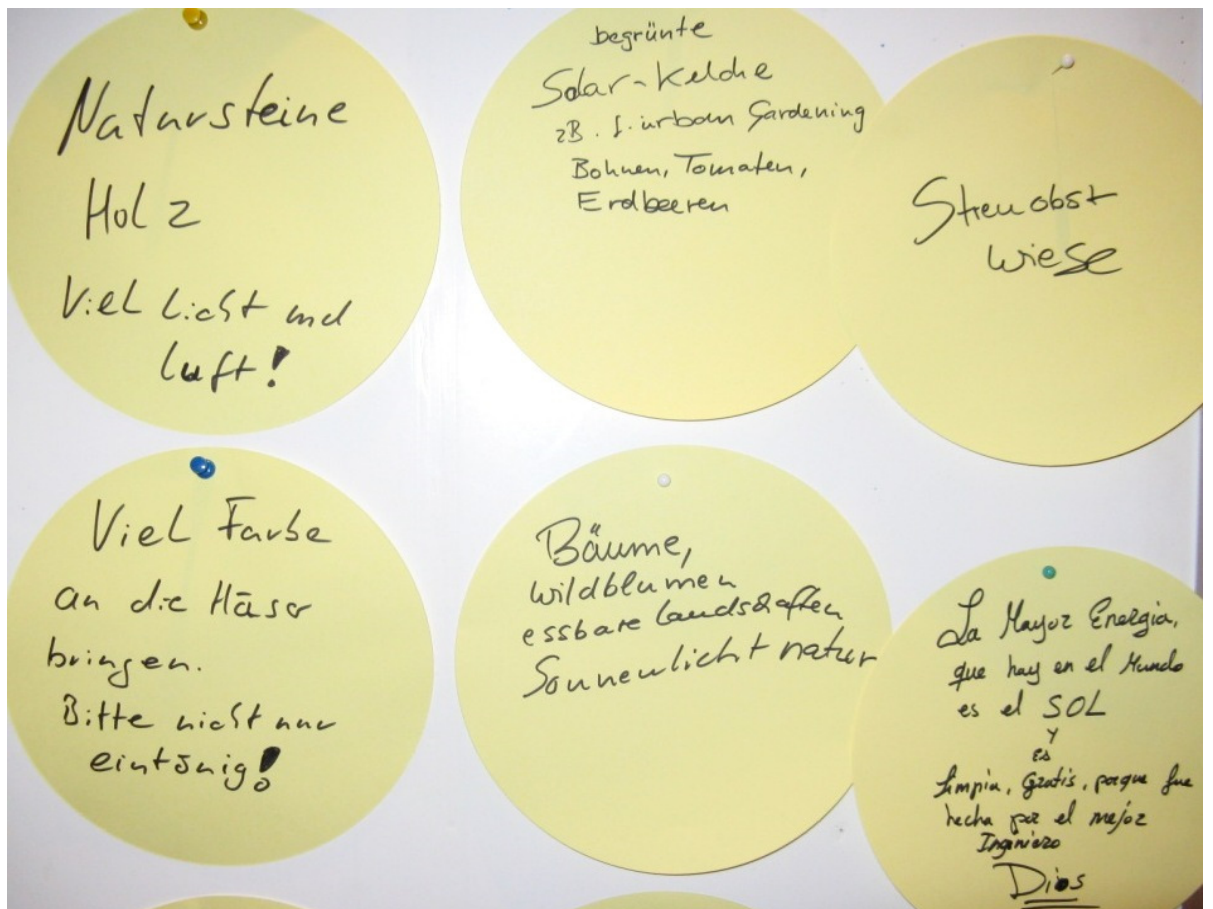 Natursteine
Holz
Viel Licht und
Luft!
begrünte
Solar-Kelche
zB. f. urban Gardening
Bohnen, Tomaten,
Erdbeeren
Streuobst
wiese
Viel Farbe
an die Häser
bringen.
Bitte nicht nur
eintönig!
Bäume,
wildblumen
essbare landschaften
Sonnenlicht natur
La Mayor Energia,
que hay en el Mundo
es el SOL
y
es
limpia, Gratis, porque fue
hecha por el mejor
Ingeniero
Dios